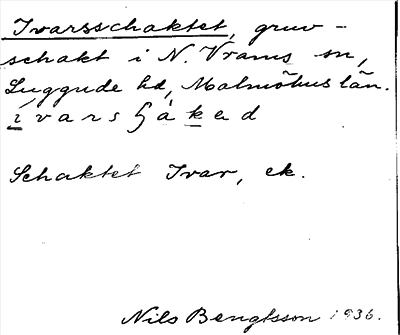 Ivarsschaktet, gruv-
schakt i N. Vrams sn,
Luggude hd, Malmöhus län.
ivarsʃäkad
Schaktet Ivar, ek.
Nils Bengtsson 1936.